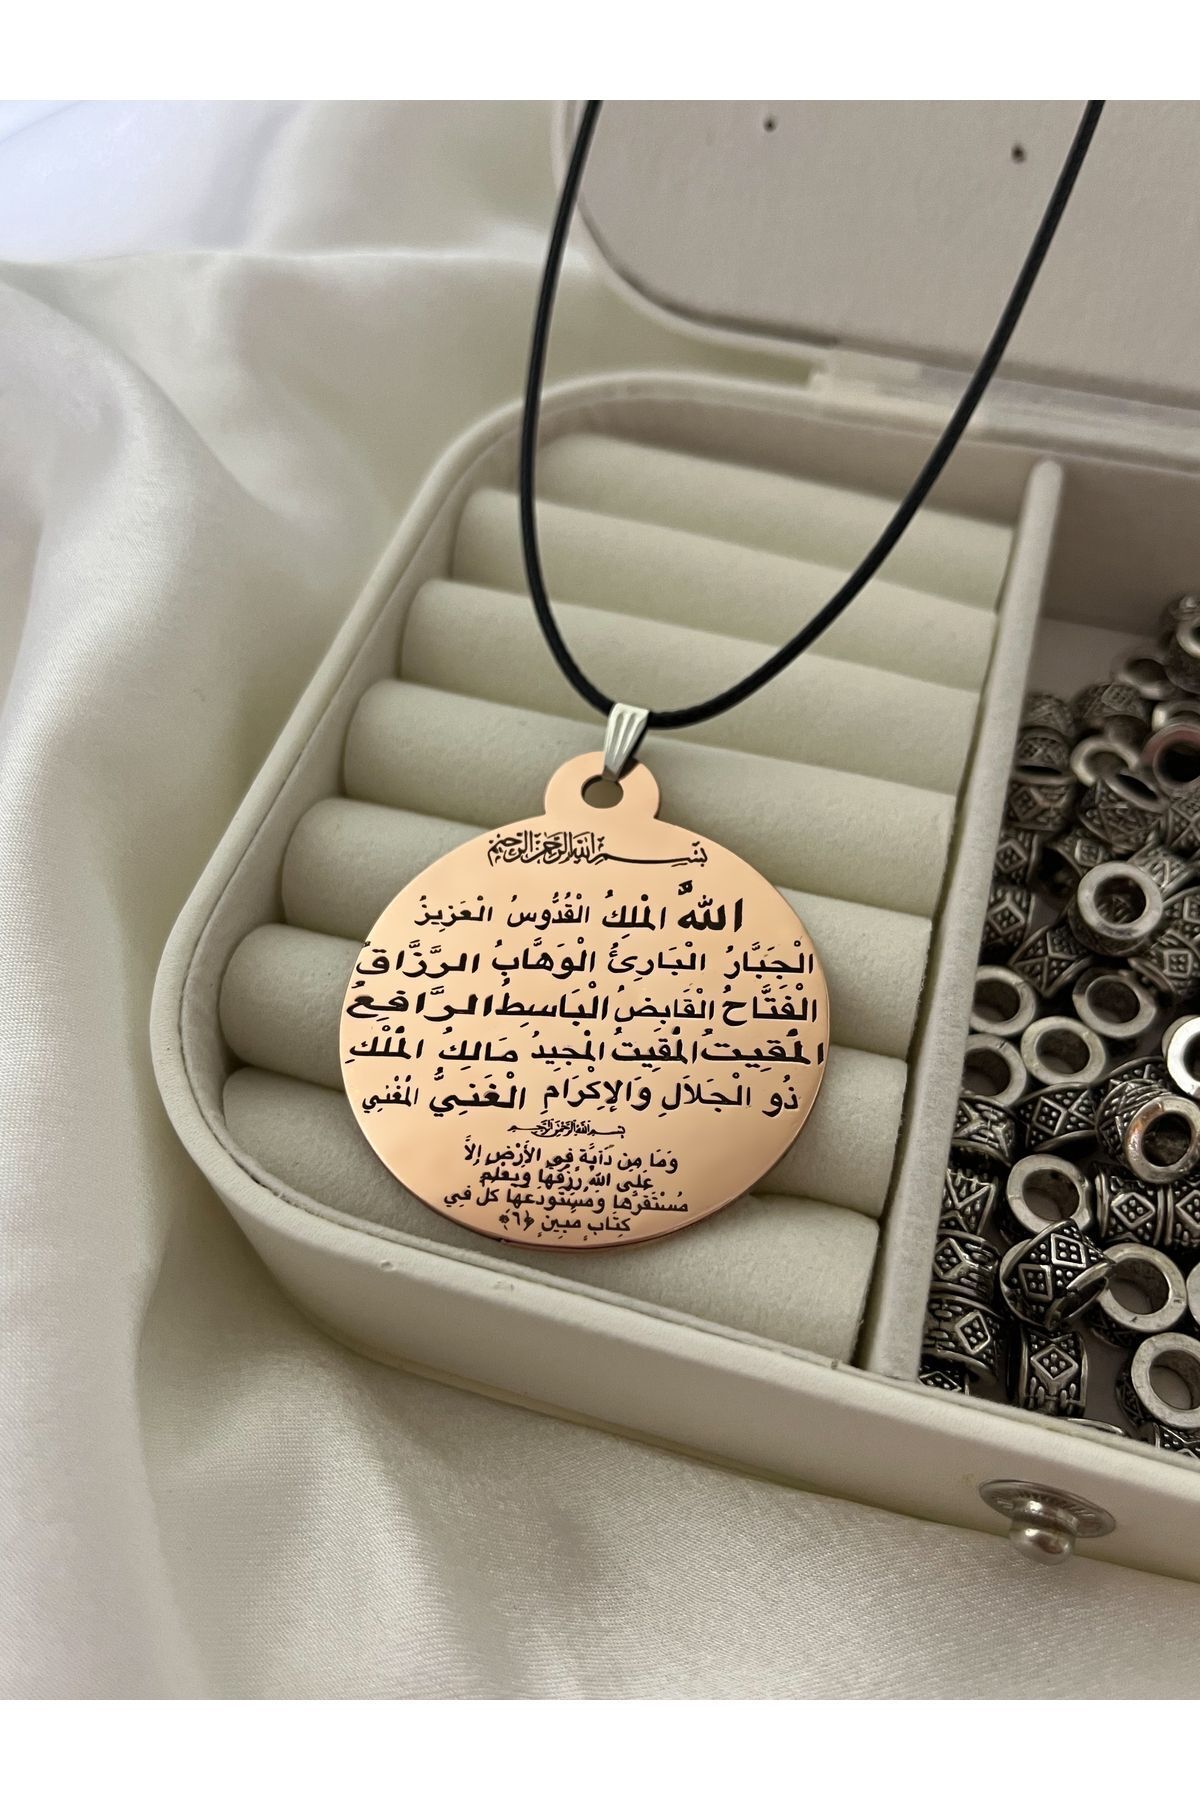 بسم الله الرحمن الرحيم
اللهُ الْمَلِكُ الْقُدُّوسُ الْعَزِيزُ
الْجَبَّارُ الْبَارِئُ الْوَهَّابُ الرَّزَّاقُ
الْفَتَّاحُ الْقَابِضُ الْبَاسِطُ الرَّافِعُ
الْمُقِيتُ الْمُقِيتُ الْمَجِيدُ مَالِكُ الْمُلْكِ
ذُو الْجَلَالِ وَالْإِكْرَامِ الْغَنِيُّ الْمُغْنِي
بسم الله الرحمن الرحيم
وَمَا مِن دَابَّةٍ فِي الْأَرْضِ إِلَّا
عَلَى اللهِ رِزْقُهَا وَيَعْلَمُ
مُسْتَقَرَّهَا وَمُسْتَوْدَعَهَا كُلٌّ فِي
كِتَابٍ مُّبِينٍ ﴿٦﴾